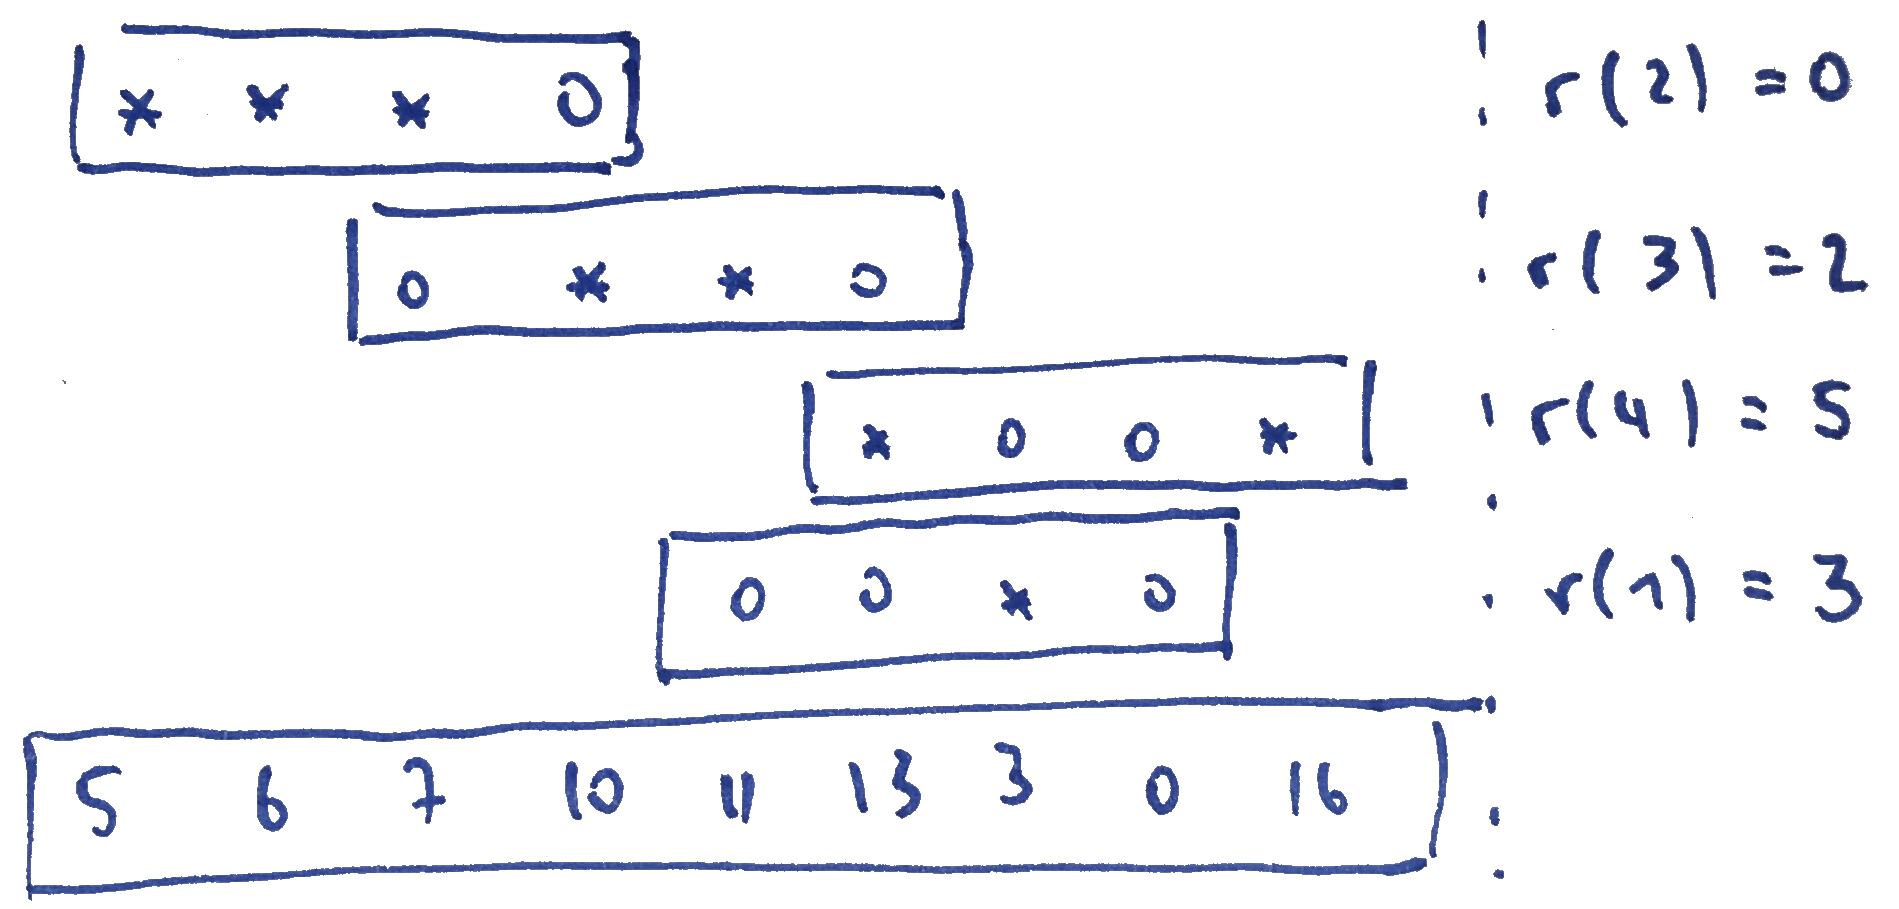 * * * 0 r(2) = 0
0 * * 0 r(3) = 2
* 0 0 * r(4) = 5
0 0 * 0 r(1) = 3
5 6 7 10 11 13 3 0 16